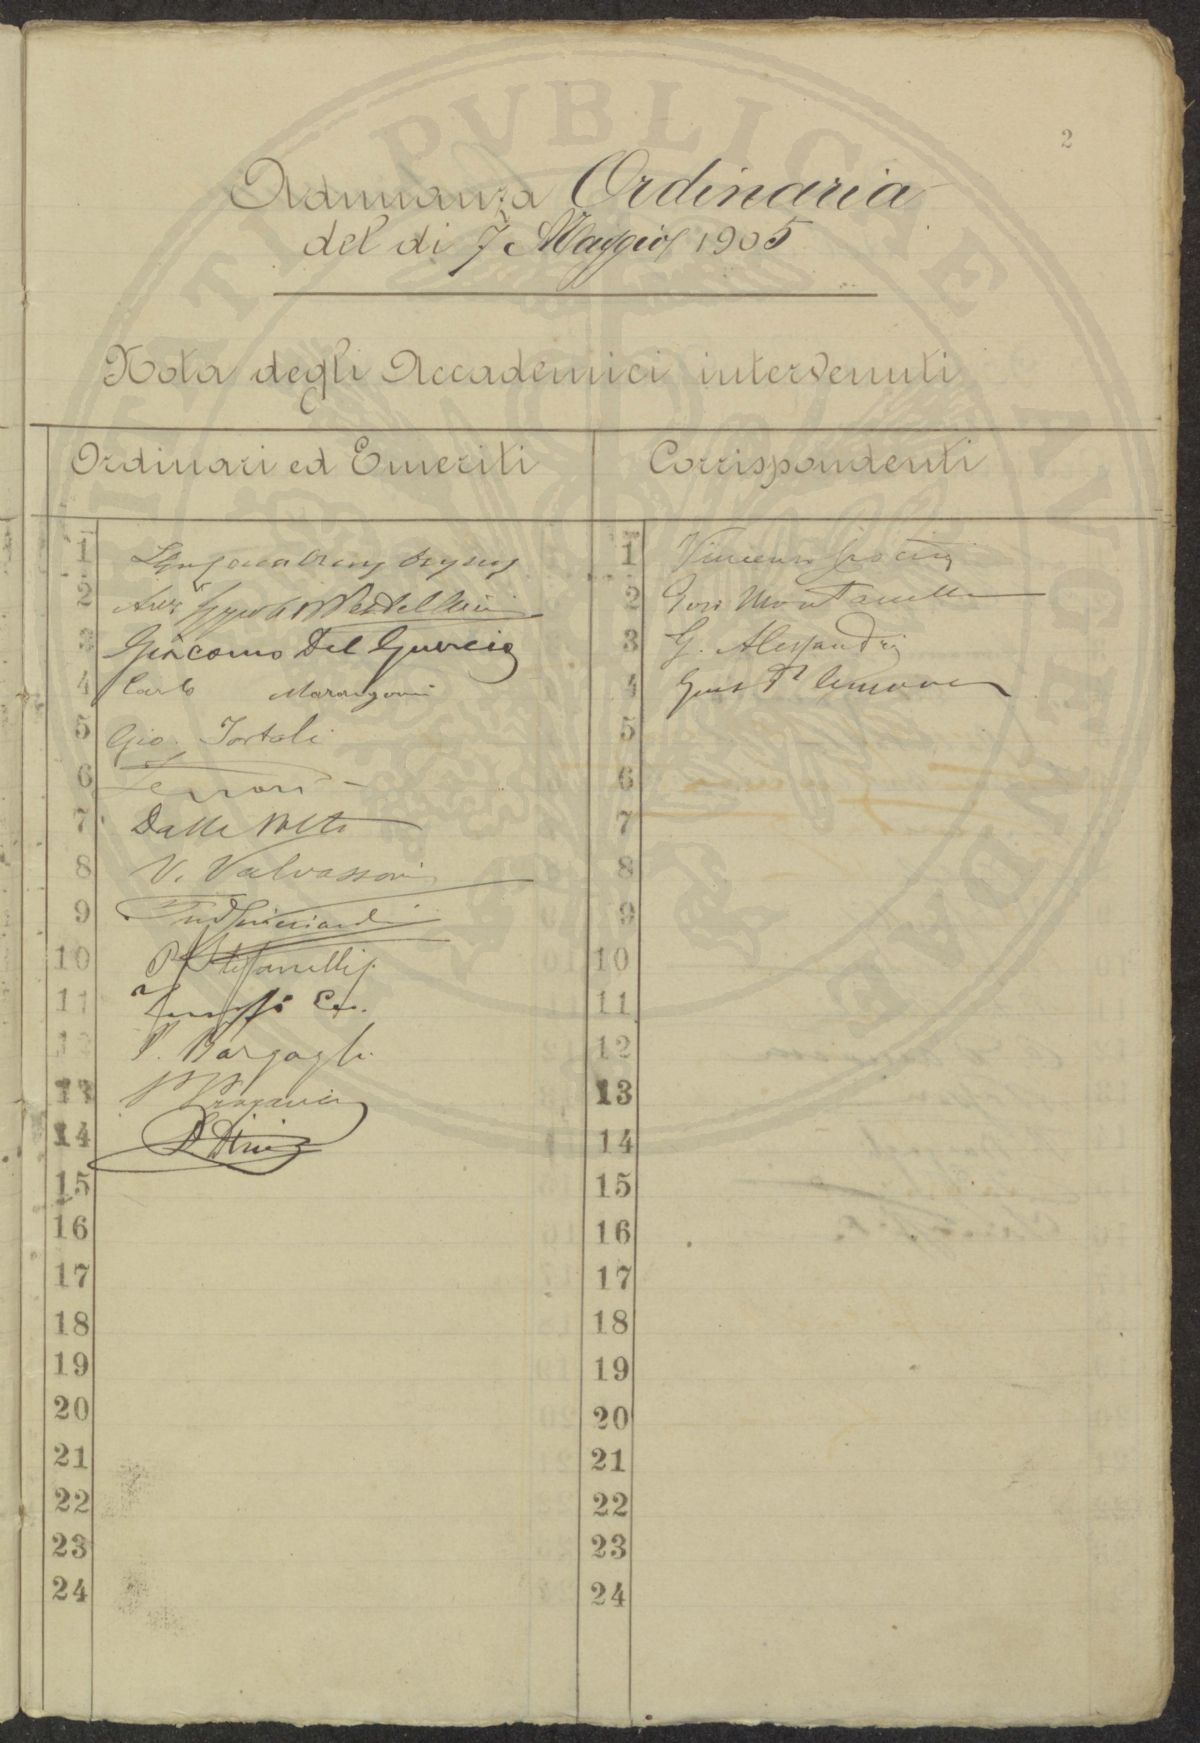 2
Adunanza Ordinaria
del dì 7 Maggio 1905
Nota degli Accademici intervenuti
Ordinari ed Emeriti
Corrispondenti
1
2
3 Giacomo Del Guercio
4 Carlo Marangoni
5 Gio. Tortoli
6 Ferrari
7 Dalla Volta
8 V. Valvassori
9
10 P. Stefanelli
11
12 P. Bargagli
13
14
15
16
17
18
19
20
21
22
23
24
1 Vincenzo
2 Montanelli
3 G. Alessandri
4
5
6
7
8
9
10
11
12
13
14
15
16
17
18
19
20
21
22
23
24